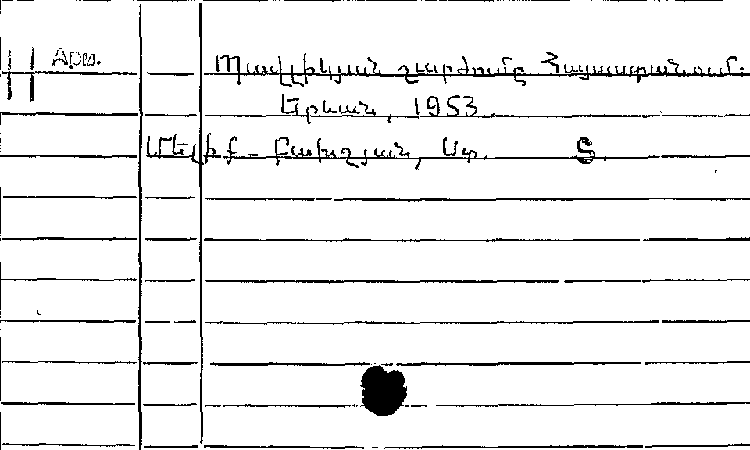 Арм. Պավլիկյան շարժումը Հայաստանում.
Երևան, 1953.
Մելիք-Բախշյան, Ստ. Տ.